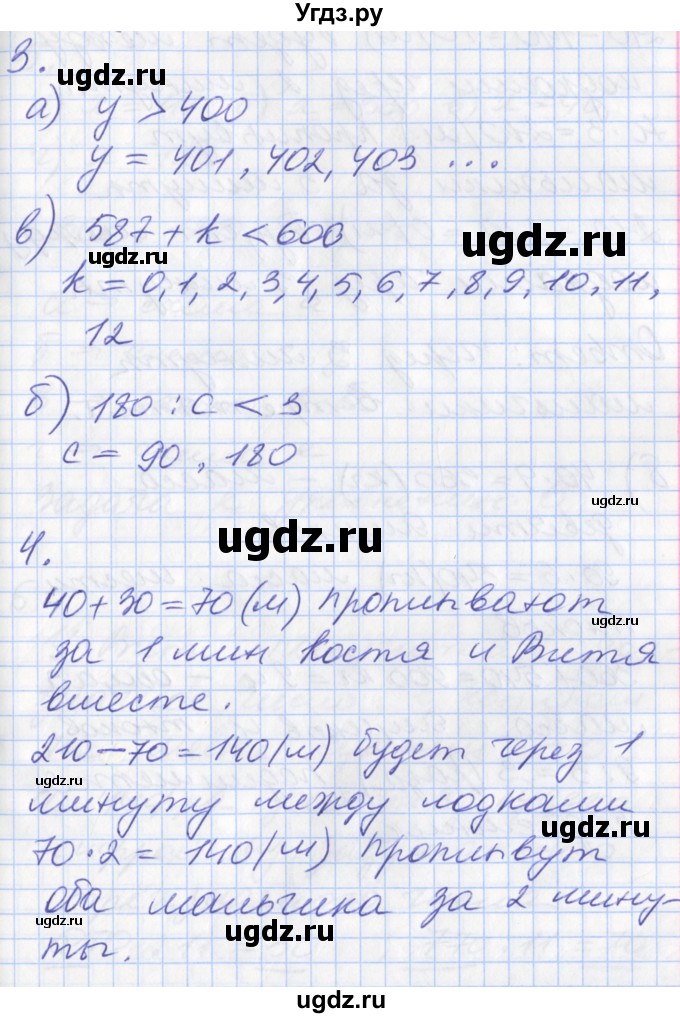 Угдз.ру
3.
ugdz.ru
а) y > 400
y = 401, 402, 403 ...
в) 587 + k < 600
ugdz.ru
ugdz.ru
k = 0, 1, 2, 3, 4, 5, 6, 7, 8, 9, 10, 11,
12
б) 180 : c < 3
c = 90, 180
ugdz.ru
ugdz.ru
4.
40 + 30 = 70 (м) проплывают
ugdz.ru
за 1 мин Костя и Витя
вместе.
210 - 70 = 140 (м) будет через 1
минуту между лодками
ugdz.ru
70 · 2 = 140 (м) проплывут
оба мальчика за 2 мину-
ты.
ugdz.ru
ugdz.ru
ugdz.ru